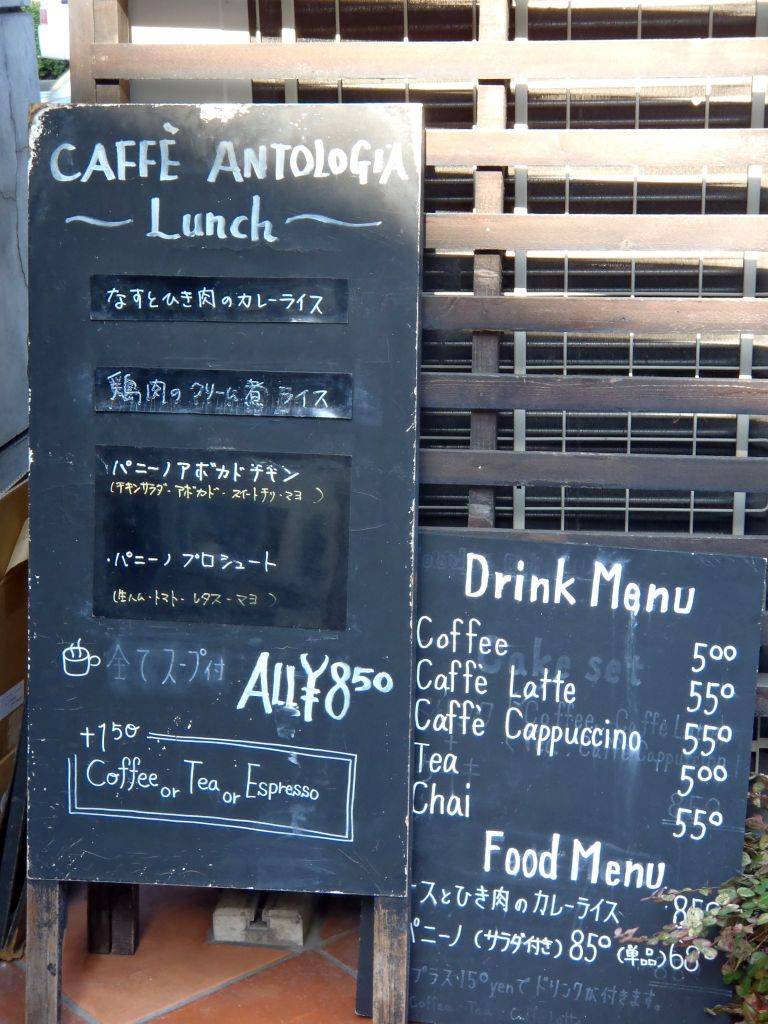 CAFFÈ ANTOLOGIA
Lunch
なすとひき肉のカレーライス
鶏肉のクリーム煮 ライス
パニーノアボカドチキン
(チキンサラダ・アボカド・スイートチリ・マヨ)
・パニーノプロシュート
(生ハム・トマト・レタス・マヨ)
全てスープ付
ALL¥850
+150
Coffee or Tea or Espresso
Drink Menu
Coffee 500
Caffè Latte 550
Caffè Cappuccino 550
Tea 500
Chai 550
Food Menu
ースとひき肉のカレーライス 850
パニーノ(サラダ付き)850(単品)680
プラス・150yenでドリンクが付きます。
Coffee・Tea・Caffe Latte